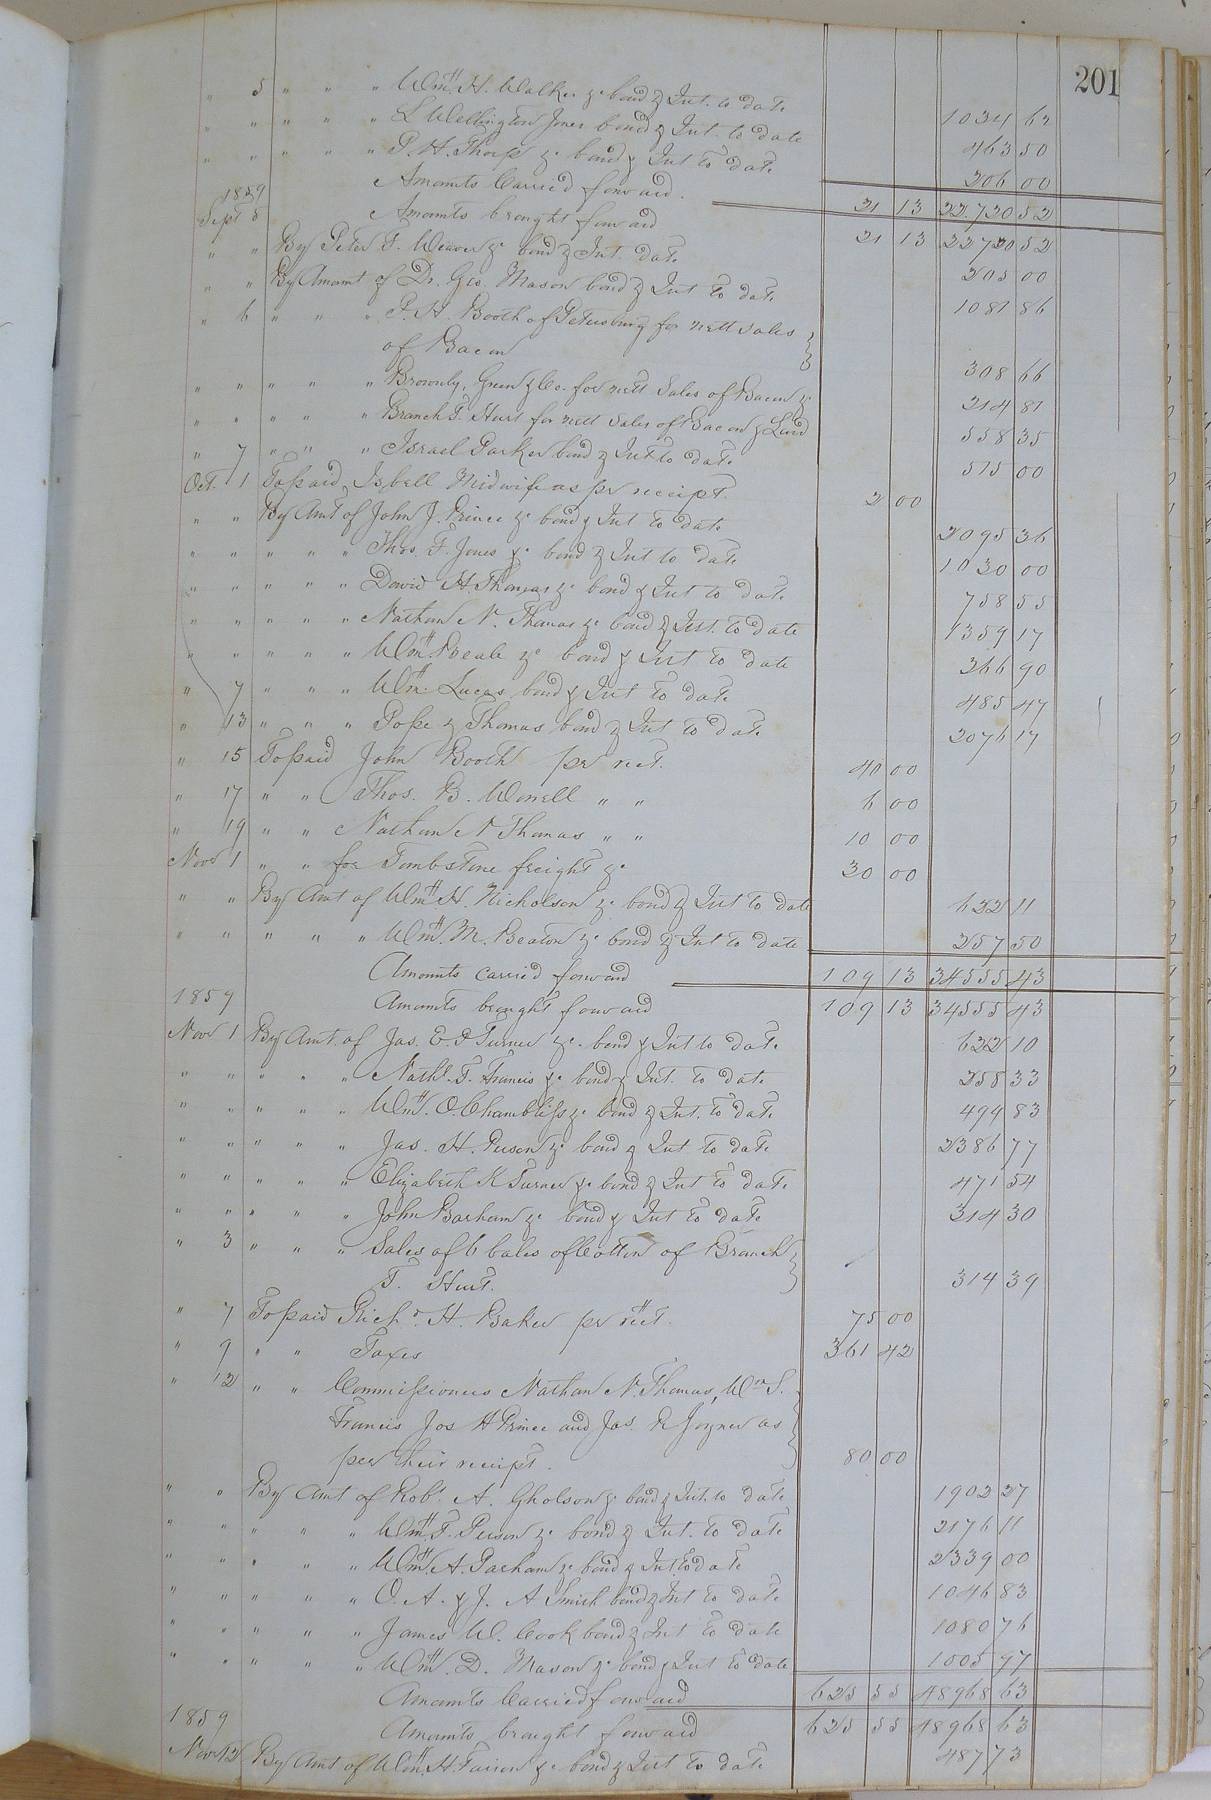 201
" 5 " " " Wm. H. Walker &c bond & Int. to date 1034 62
" " " " " L Wellington Jones bond & Int. to date 463 50
" " " " " P. H. Thorp &c bond & Int to date 206 00
Amounts Carried forward. 21 13 22.720 52
1859 Sept 5 Amounts brought forward 21 13 22720 52
" " By Peter F. Weaver &c bond & Int. date 205 00
" " By Amount of Dr. Geo. Mason bond & Int to date 1081 86
" 6 " " " P. H. Booth of Petersburg for nett sales
of Bacon 308 66
" " " " " Brownly, Green & Co. for nett Sales of Bacon &c 214 81
" " " " " Branch T. Hurt for nett Sales of Bacon & Lard 558 35
" 7 " " " Israel Parker bond & Int to date 515 00
Oct. 1 To paid, Isbell Midwife as pr receipt. 2 00
" " By Amt of John J. Prince &c bond & Int to date 2095 36
" " " " " Thos. F. Jones &c bond & Int to date 1030 00
" " " " " David H. Thomas &c bond & Int to date 758 55
" " " " " Nathan N. Thomas &c bond & Int. to date 1359 17
" " " " " Wm. Beale &c bond & Int to date 366 90
" 7 " " " Wm. Lucas bond & Int to date 485 47
" 13 " " " Pope & Thomas bond & Int to date 2076 17
" 15 To paid John Booth pr rect. 40 00
" 17 " " Thos. B. Worrell " " 6 00
" 19 " " Nathan N Thomas " " 10 00
Nov 1 " " for Tombstone freight &c 30 00
" " By Amt of Wm. H. Nicholson &c bond & Int to date 622 11
" " " " " Wm. M. Beaton &c bond & Int to date 257 50
Amounts carried forward 109 13 34555 43
1859 Amounts brought forward 109 13 34555 43
Nov 1 By Amt. of Jas. E P Turner &c bond & Int to date 622 10
" " " " " Nathl. T. Francis &c bond & Int. to date 258 33
" " " " " Wm. O. Chambliss &c bond & Int. to date 499 83
" " " " " Jas. H. Person &c bond & Int to date 2386 77
" " " " " Elizabeth K Turner &c bond & Int to date 471 54
" " " " " John Barham &c bond & Int to date 314 30
" 3 " " " Sales of 6 bales of Cotton of Branch
T. Hurt. 314 39
" 7 To paid Richd. H. Baker pr rect. 75 00
" 9 " " Taxes 361 42
" 12 " " Commissioners Nathan N. Thomas, Wm S.
Francis Jos H Prince and Jas. R Joyner as
per their receipt. 80 00
" " By Amt of Robt. A. Gholson &c bond & Int. to date 1902 27
" " " " " Wm. T. Person &c bond & Int. to date 2176 11
" " " " " Wm A. Parham &c bond & Int to date 2339 00
" " " " " O. A. & J. A Smith bond & Int to date 1046 83
" " " " " James W. Cook bond & Int to date 1080 76
" " " " " Wm. D. Mason &c bond & Int to date 1005 97
Amounts Carried forward 625 55 48968 63
1859 Amounts brought forward 625 55 48968 63
Nov 12 By Amt of Wm. H. &c bond & Int to date 487 73